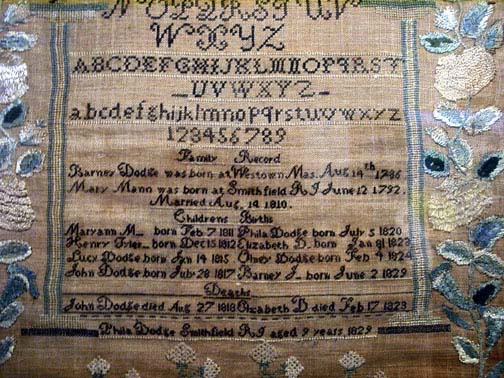 NOPQRSTUV
WXYZ
ABCDEFGHIJKLMNOPQRST
UVWXYZ
abcdefghijklmnopqrstuvwxyz
123456789
Family Record
Barney Dodge was born at Westown Mas. Aug 14th 1786
Mary Mann was born at Smithfield R I June 12 1792.
Married Aug. 14 1810.
Childrens Births
Maryann M born Feb 7 1811 Phila Dodge born July 5 1820
Henry born Dec 15 1812 Elizabeth D. born Jan 31 1823
Lucy Dodge born Jan 14 1815 Olney Dodge born Feb 4 1824
John Dodge born July 28 1817 Barney J born June 2 1829
Deaths
John Dodge died Aug 27 1818 Elizabeth D died Feb 17 1823
Phila Dodge Smithfield R I aged 9 years 1829